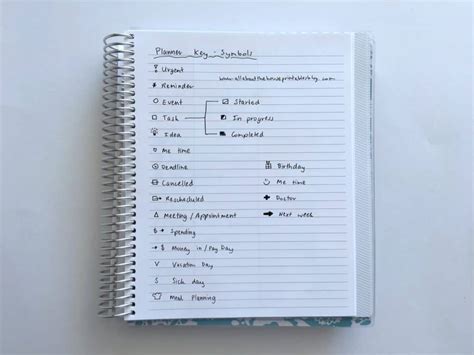 Planner Key - Symbols
Urgent
www.allaboutthehouseprintablesblog.com
Reminder
Event
Started
Task
In progress
Idea
Completed
Me time
Deadline
Birthday
Cancelled
Me time
Rescheduled
Doctor
Meeting / Appointment
Next week
Spending
$ Money in / Pay Day
V Vacation Day
S Sick day
Meal Planning